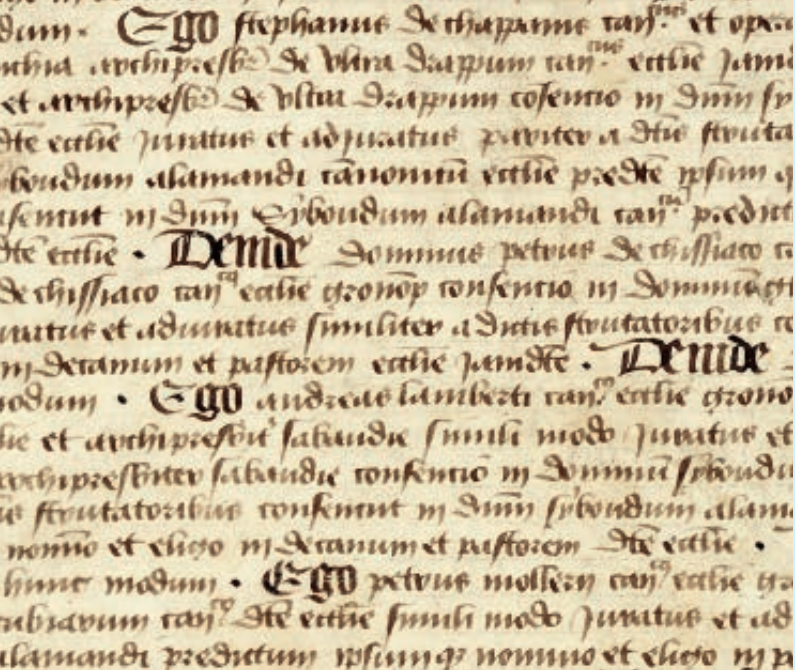 dum · Ego stephanus de chappanis can^cus et opera
archipresbr̄ de vltra drappum can^cus eccl̄ie jam
et archipresbr̄ de vltra drappum cōsencio in dn̄m sy
dc̄te eccl̄ie juratus et adjuratus pariter a dc̄is scruta
ybondum alamandi canonicū eccl̄ie predc̄te ipsum
in dn̄m Sybondum alamandi can^cū predict
dc̄te eccl̄ie · Deinde dominus petrus de chissiaco
de chissiaco can^cus eccl̄ie gronōp consencio in dominum
iuratus et adiuratus similiter a dictis scrutatoribus
in decanum et pastorem eccl̄ie jamdc̄te · Deinde
modum · Ego andreas lamberti can^cus eccl̄ie grono
lie et archipresbit̄ sabaudie simili modo juratus et
archipresbiter sabaudie consencio in dominū sybondu
is scrutatoribus consenciut in dn̄m sybondum alam
nomīo et eligo in decanum et pastorem dc̄te eccl̄ie ·
hunc modum · Ego petrus mollerii can^cus eccl̄ie gr
can^cus dc̄te eccl̄ie simili modo juratus et ad
alamandi predictum ipsumq̄ nomino et eligo in